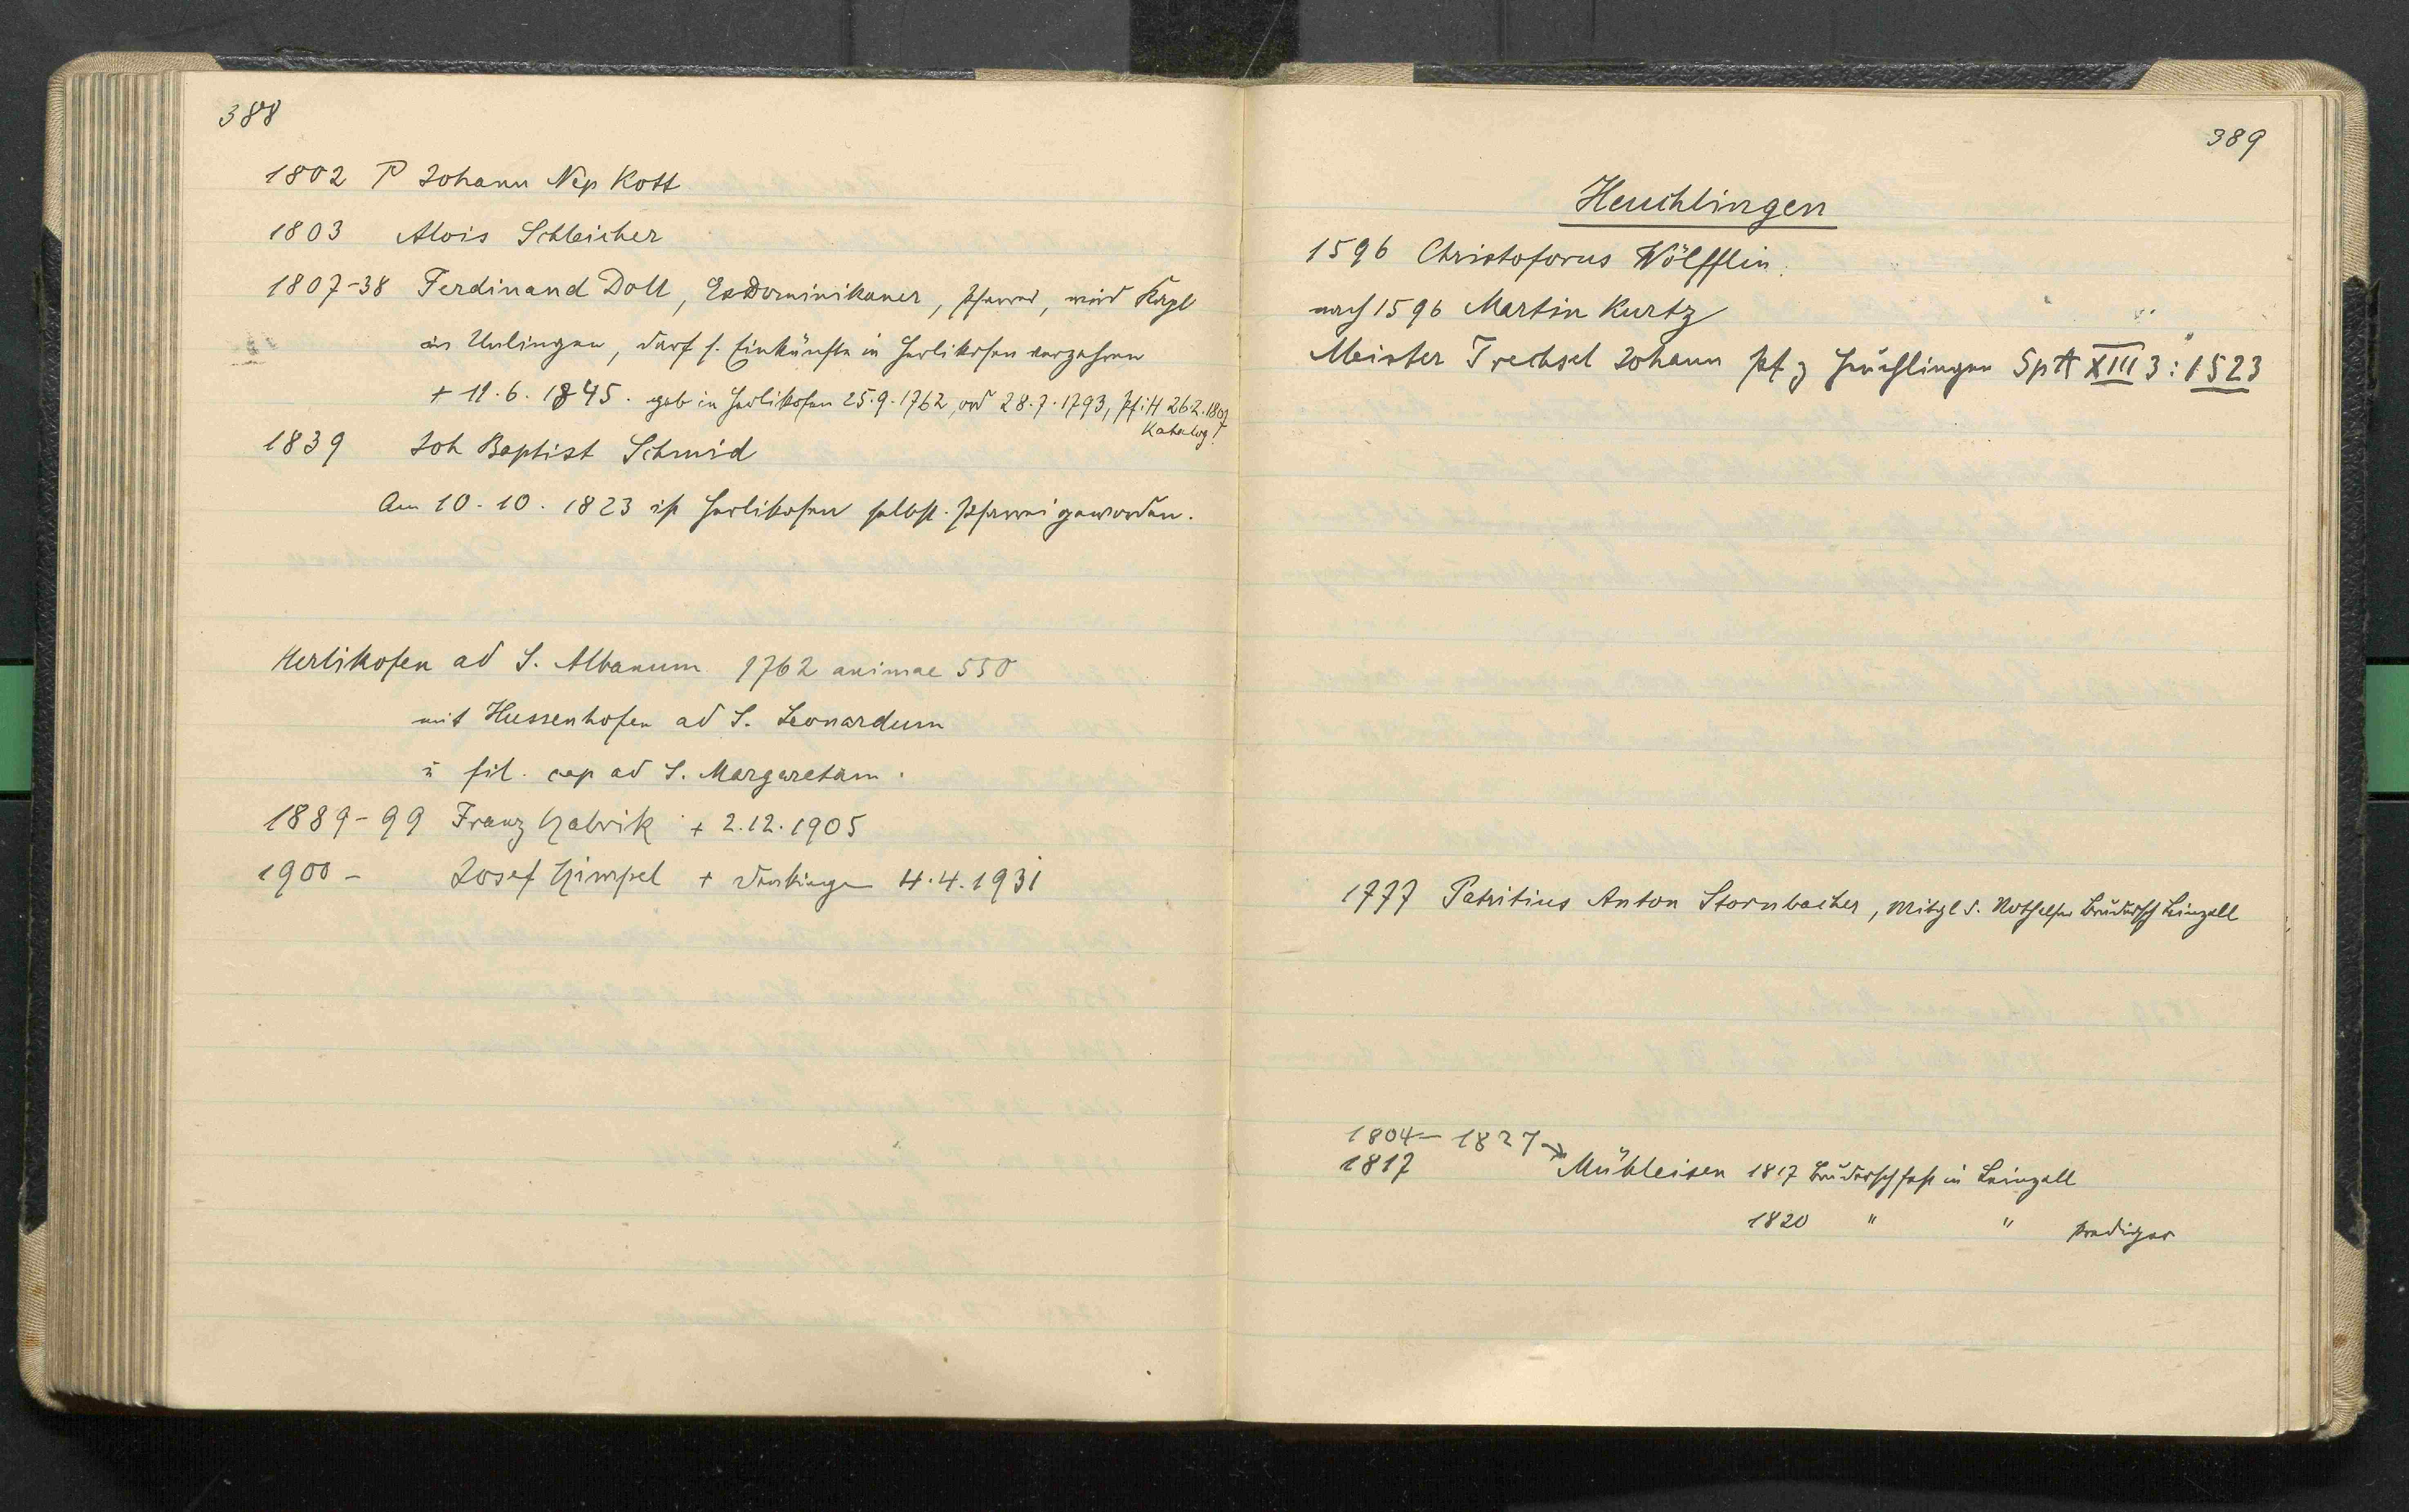 388
1802 P Johann Nep Kott
1803 Alois Schleicher
1807-38 Ferdinand Doll, Exdominikaner, Pfarrer, wird Kapl
in Unlingen, darf s. Einkünfte in Herlikofen verzehren
+ 11.6.1845. geb in Herlikofen 25.9.1762, ord 28.7.1793, Pf i H 26.2.1807
Katalog!
1839 Joh Baptist Schmid
Am 10.10.1823 ist Herlikofen selbst. Pfarrei geworden.
Herlikofen ad S. Albanum 1762 animae 550
mit Hussenhofen ad S. Leonardum
u fil. cap ad S. Margaretam.
1889-99 Franz Gabrik + 2.12.1905
1900 - Josef Gimpel + 4.4.1931
389
Heuchlingen
1596 Christoforus Wölfflin.
nach 1596 Martin Kurtz
Meister Trechsel Johann Pf z Heuchlingen SpA XIII 3: 1523
1777 Patritius Anton Stornbacher, Mitgl d. Nothelfer Brudersch Leinzell
1804- 1827 →
1817 Mühleisen 1817 Brudersch fest in Leinzell
1820 " " Prediger